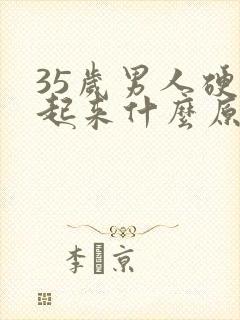 35歲男人硬
起来什麼原
李 京